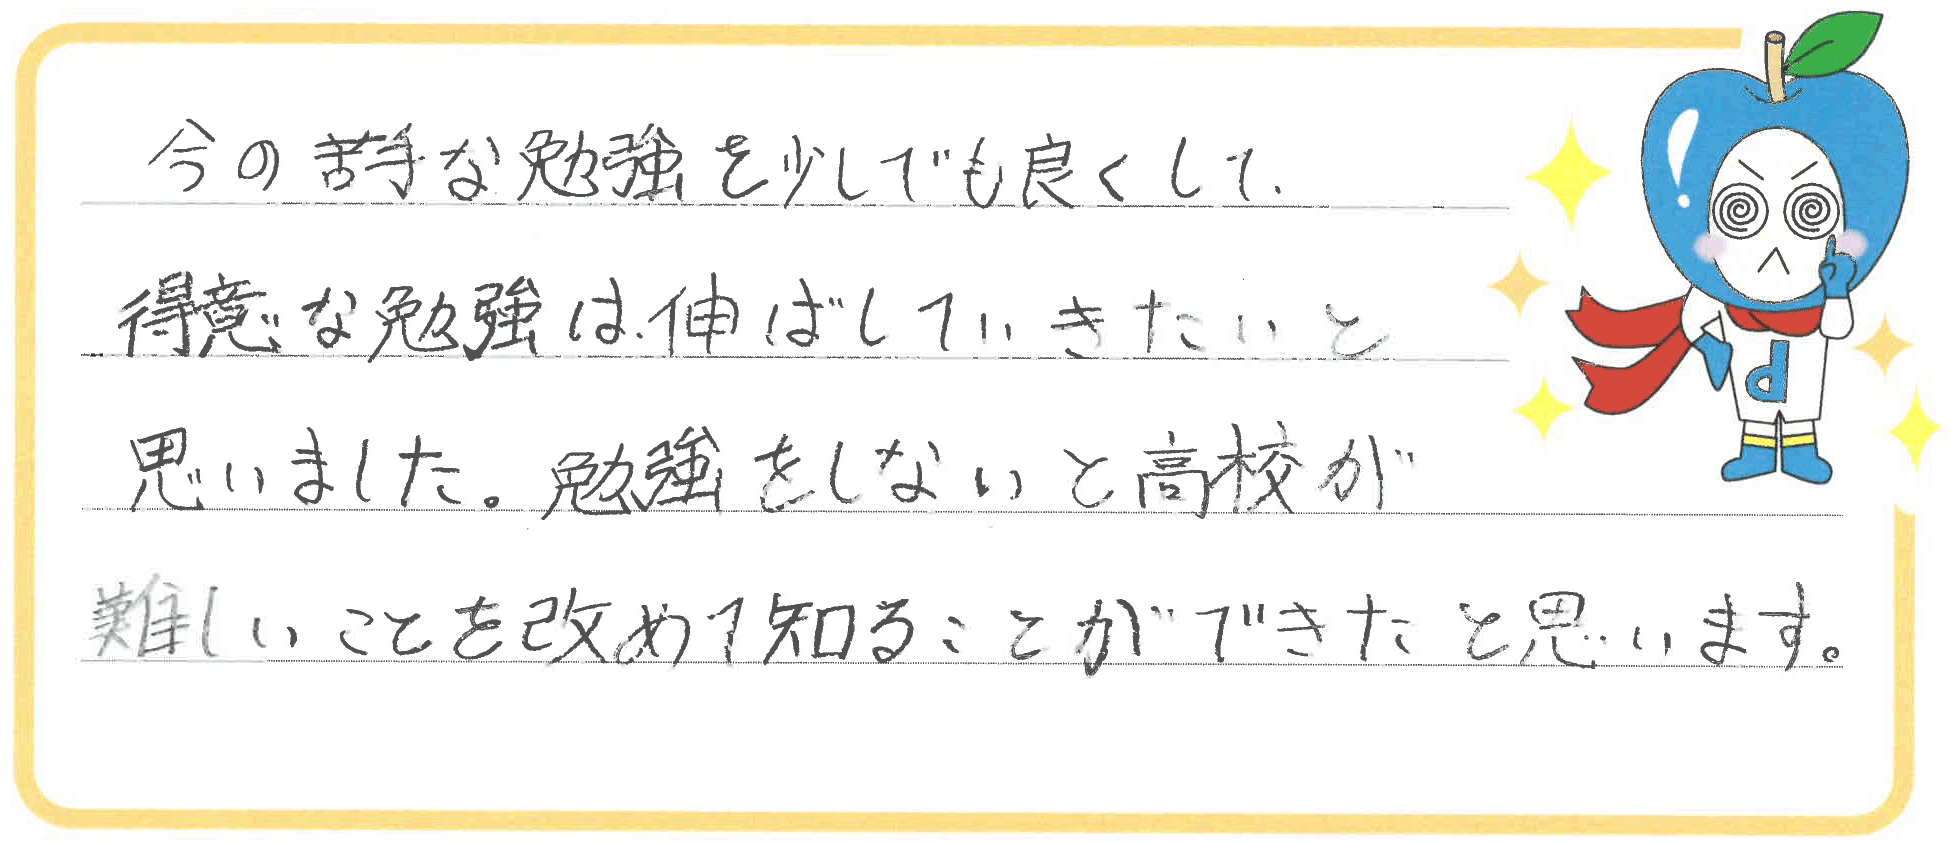 今の苦手な勉強を少しでも良くして、
得意な勉強は伸ばしていきたいと
思いました。勉強をしないと高校が
難しいことを改めて知ることができたと思います。
d